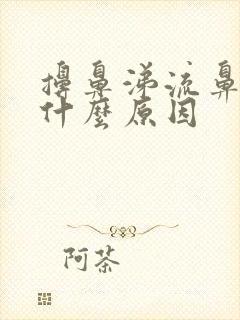 擤鼻涕流鼻
什麼原因
阿茶